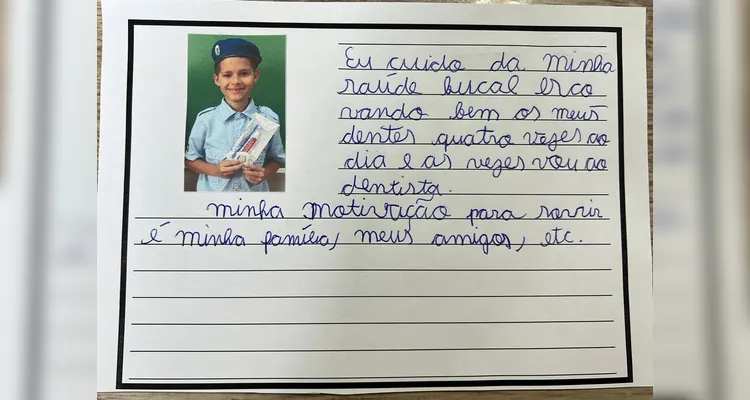 Eu cuido da minha
saúde bucal esco
vando bem os meus
dentes quatro vezes ao
dia e as vezes vou ao
dentista.
minha motivação para sorrir
é minha família, meus amigos, etc.